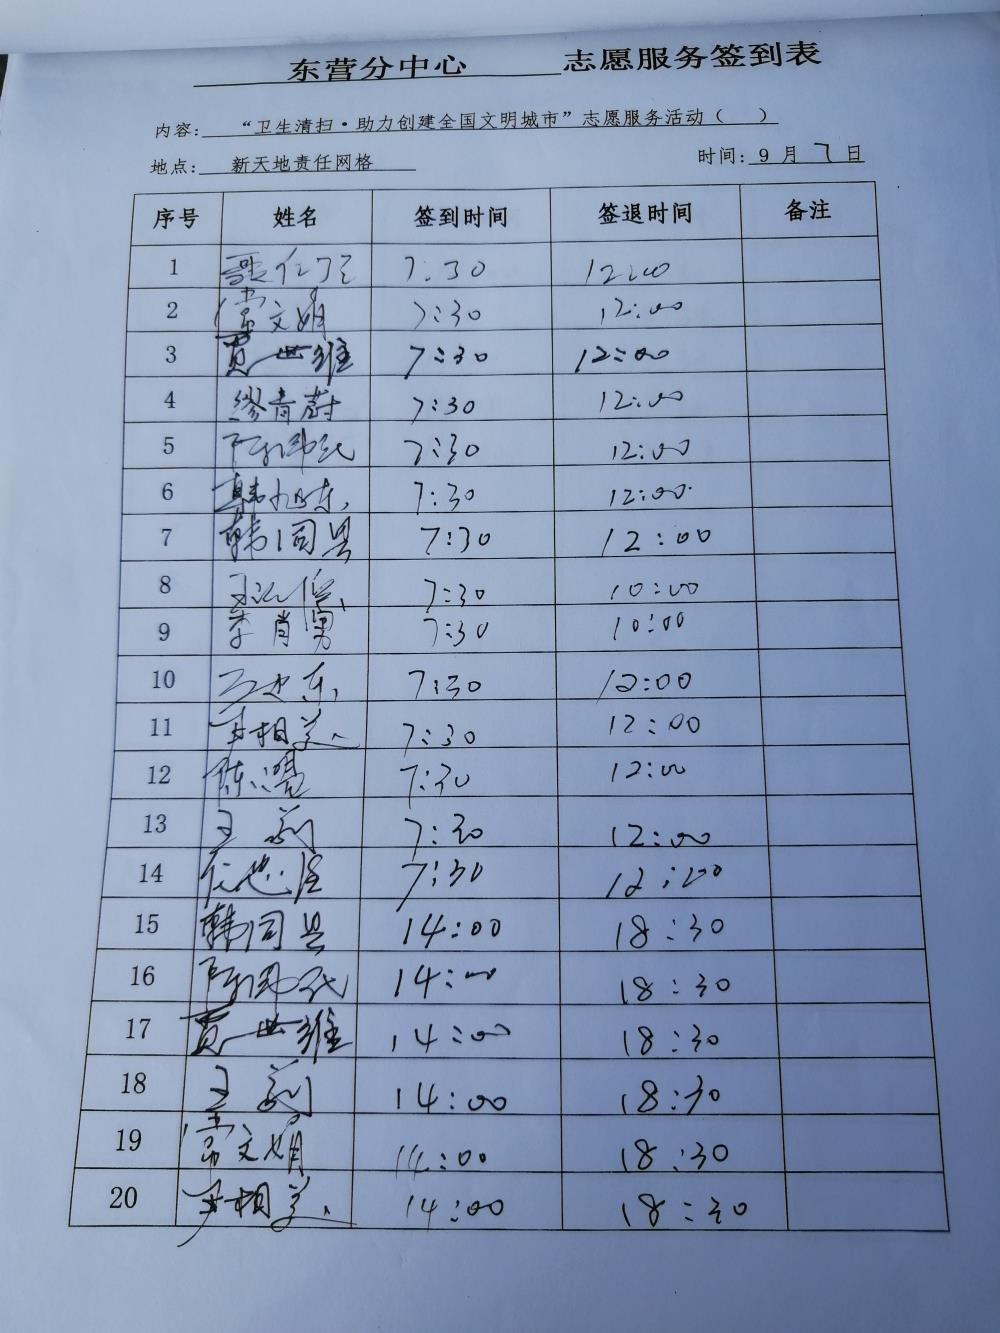 东营分中心 志愿服务签到表
内容: “卫生清扫·助力创建全国文明城市”志愿服务活动( )
地点: 新天地责任网格 时间: 9 月 7 日
序号 姓名 签到时间 签退时间 备注
1 7:30 12:00
2 常文娟 7:30 12:00
3 贾世雄 7:30 12:00
4 缪青蔚 7:30 12:00
5 7:30 12:00
6 韩旭东 7:30 12:00
7 韩同县 7:30 12:00
8 7:30 10:00
9 李肖勇 7:30 10:00
10 7:30 12:00
11 相美 7:30 12:00
12 陈 7:30 12:00
13 王莉 7:30 12:00
14 7:30 12:00
15 韩同县 14:00 18:30
16 14:00 18:30
17 贾世雄 14:00 18:30
18 王莉 14:00 18:30
19 常文娟 14:00 18:30
20 相美 14:00 18:30